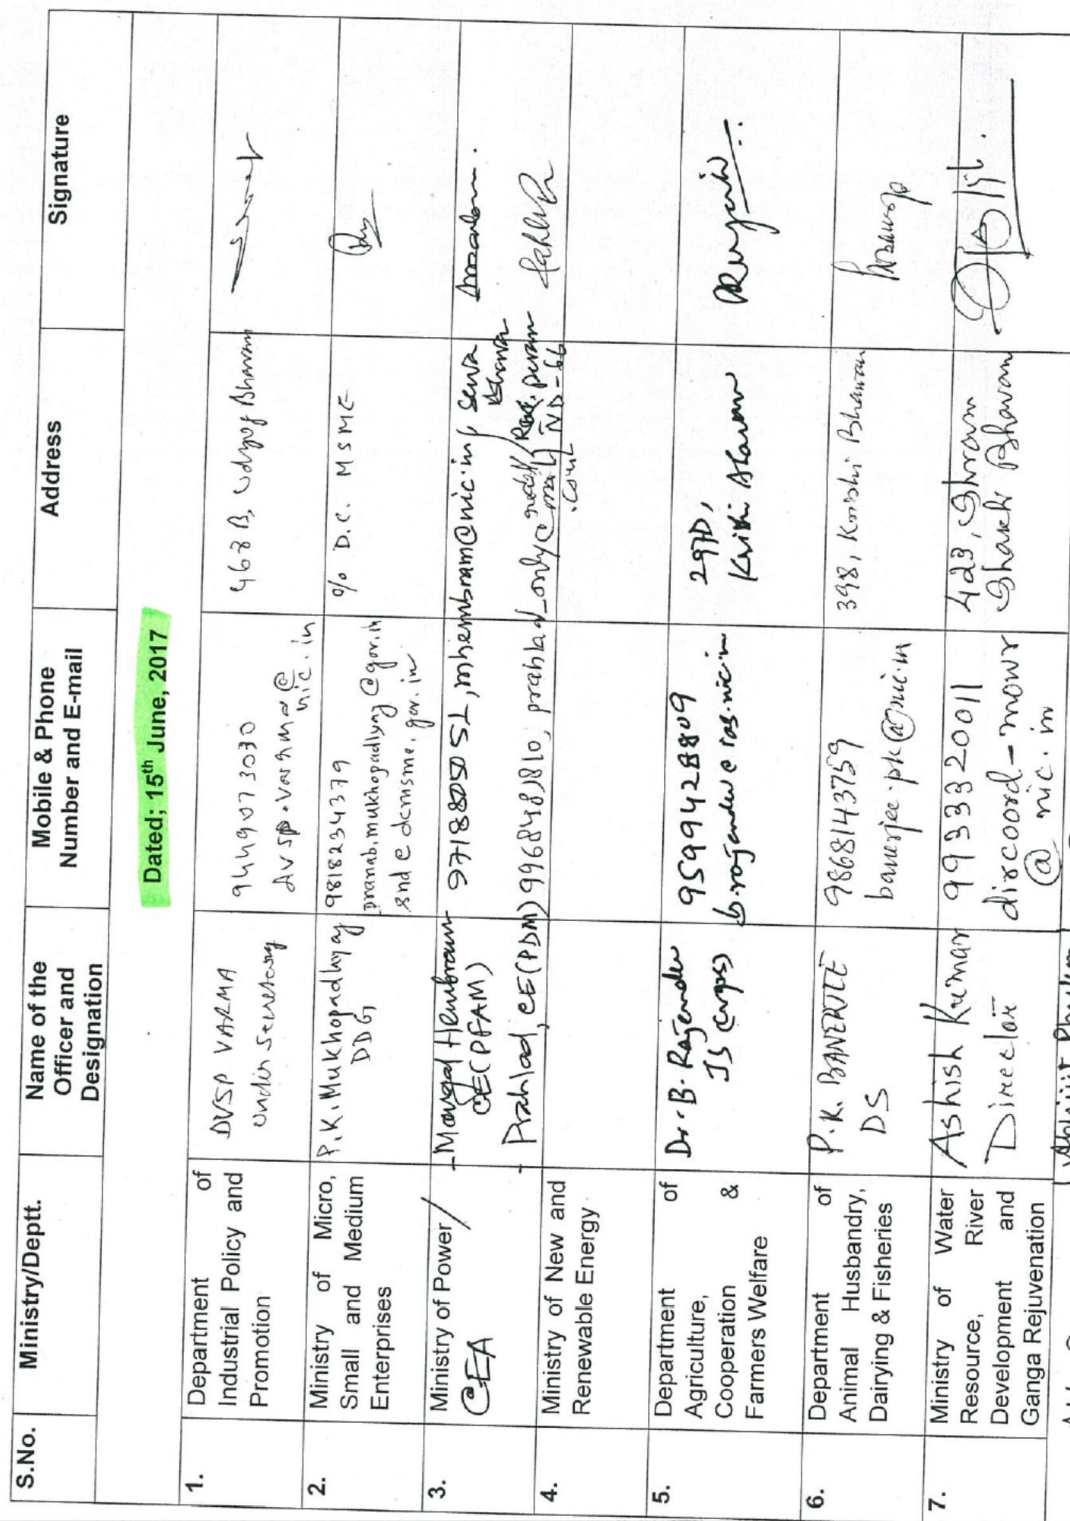 S.No.
Ministry/Deptt.
Name of the
Officer and
Designation
Mobile & Phone
Number and E-mail
Address
Signature
Dated; 15th June, 2017
1.
Department of
Industrial Policy and
Promotion
DVSP VARMA
Under Secretary
9449073030
dvsp.varma@
nic.in
468 B, Udyog Bhavan
2.
Ministry of Micro,
Small and Medium
Enterprises
P.K. Mukhopadhyay
DDG
9818234379
pranab.mukhopadhyay@gov.in
snd@dcmsme.gov.in
% D.C. MSME
3.
Ministry of Power /
CEA
- Mangal Hembram
CE(PFAM)
9718805052, mhembram@nic.in,
Sewa
Bhawan
- Prahlad, CE(PDM)
prahlad_only@
ND-66
4.
Ministry of New and
Renewable Energy
5.
Department of
Agriculture,
Cooperation &
Farmers Welfare
Dr. B. Rajender
JS
9599428809
b.rajender@ias.nic.in
297D,
Krishi Bhavan
6.
Department of
Animal Husbandry,
Dairying & Fisheries
P.K. BANERJEE
DS
9868143759
banerjee.pk@nic.in
398, Krishi Bhawan
7.
Ministry of Water
Resource, River
Development and
Ganga Rejuvenation
Ashish Kumar
Director
9933320011
dircoord-mowr
@nic.in
423, Shram
Shakti Bhavan